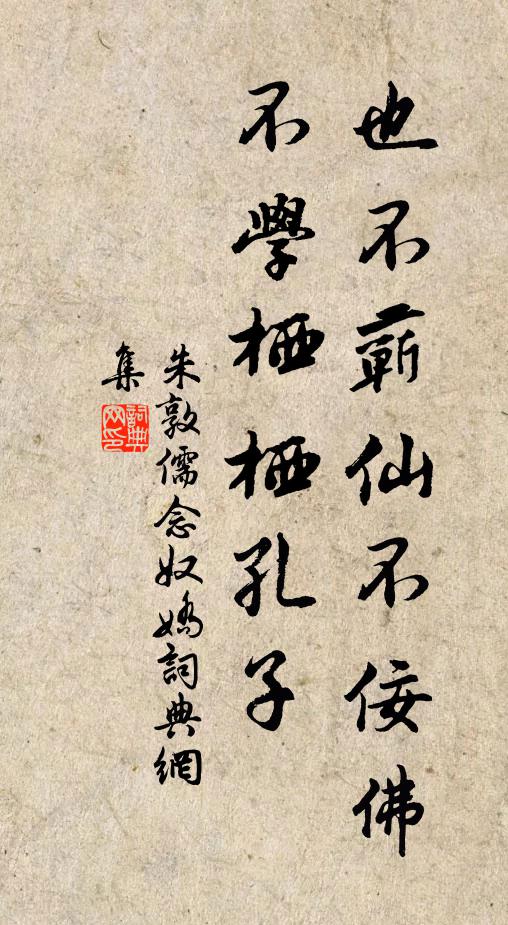 也不蘄仙不佞佛
不學栖栖孔子
朱敦儒念奴嬌詞典網
集
詞典
网印